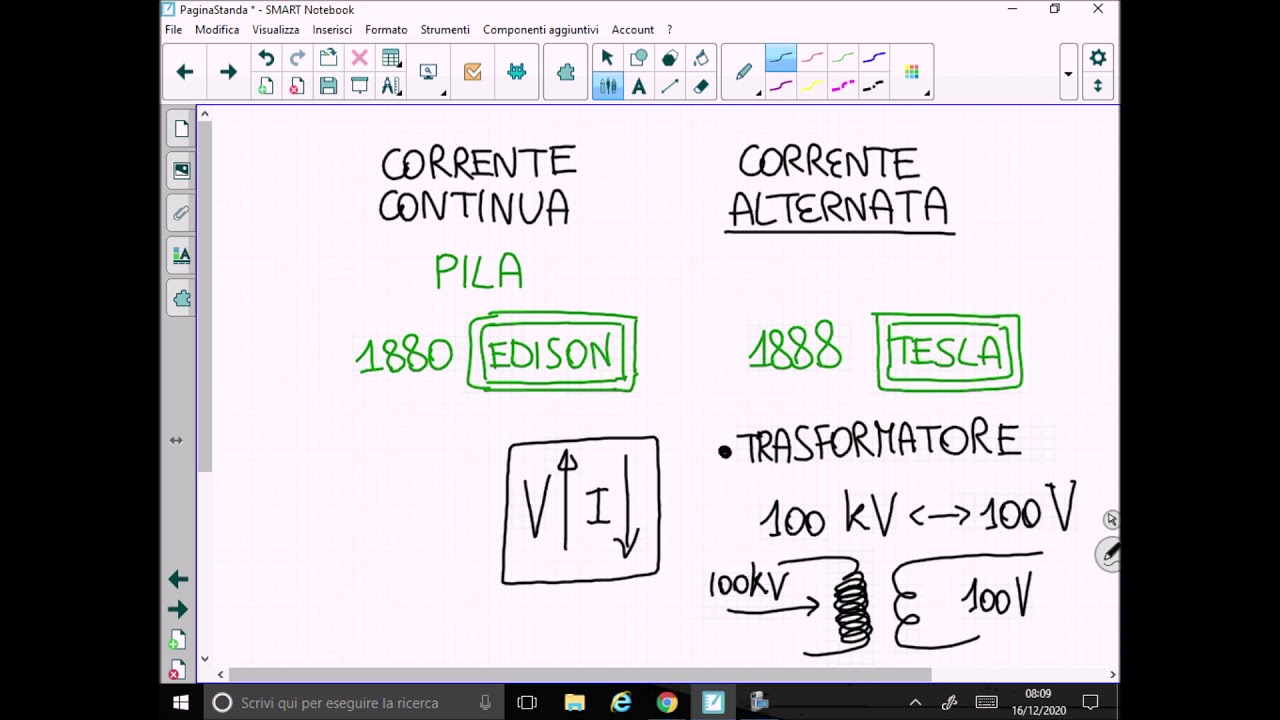 PaginaStanda * - SMART Notebook
File Modifica Visualizza Inserisci Formato Strumenti Componenti aggiuntivi Account ?
CORRENTE
CONTINUA
PILA
1880 EDISON
V I
CORRENTE
ALTERNATA
1888 TESLA
• TRASFORMATORE
100 kV <-> 100 V
100kV
100V
Scrivi qui per eseguire la ricerca
08:09
16/12/2020